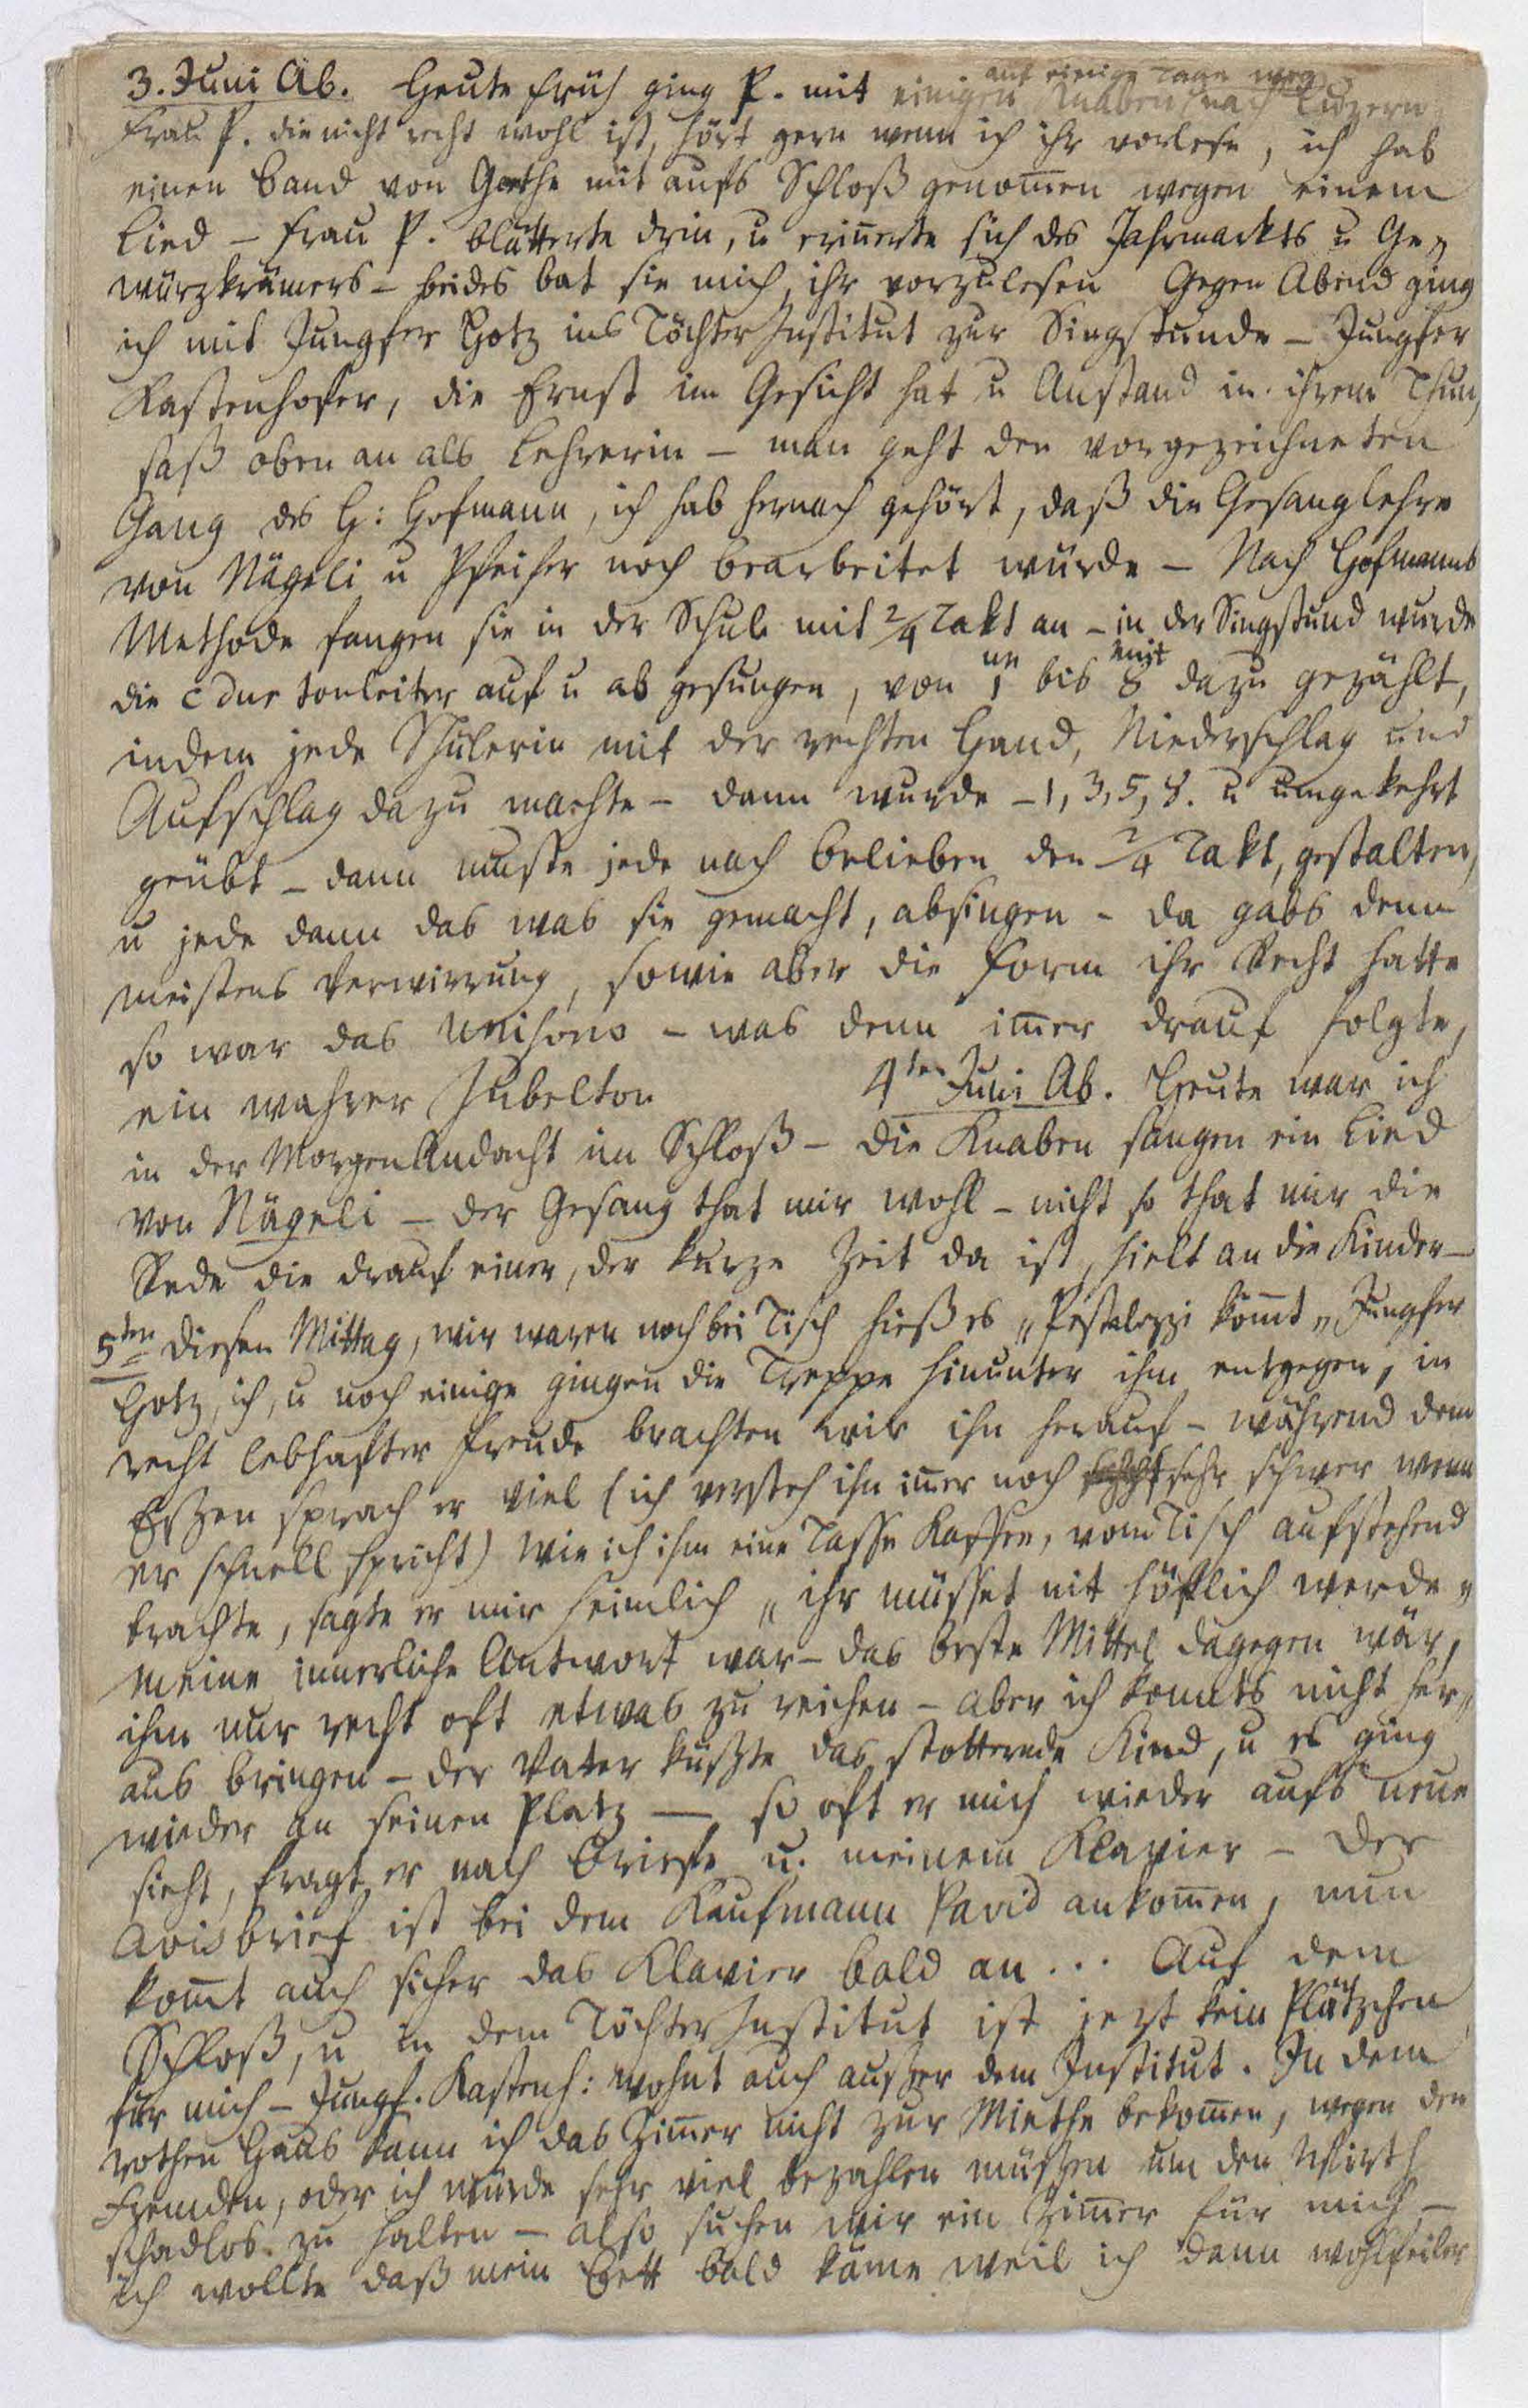 3. Juni Ab. Heute früh ging P. mit einigen Knaben nach Luzern
auf einige Tage weg
Frau P. die nicht recht wohl ist, hört gern wenn ich ihr vorlese, ich hab
einen Band von Goethe mit aufs Schloß genom̄en wegen einem
Lied – Frau P. blätterte drin, u erin̄erte sich des Jahrmarkts u Ge„
würzkrämers – beides bat sie mich, ihr vorzulesen Gegen Abend ging
ich mit Jungfer Hotz ins Töchter Institut zur Singstunde – Jungfer
Kastenhofer, die Ernst im Gesicht hat u Anstand in ihrem Thun,
saß oben an als Lehrerin – man geht den vorgezeichneten
Gang des H: Hofmann, ich hab hernach gehört, daß die Gesanglehre
von Nägeli u Pfeifer noch bearbeitet würde – Nach Hofmanns
Methode fangen sie in der Schule mit 2/4 Takt an – in der Singstund wurde
die c dur tonleiter auf u ab gesungen, von 1 bis 8 dazu gezählt,
un uit
indem jede Schülerin mit der rechten Hand, Niederschlag und
Aufschlag dazu machte – dann wurde – 1, 3, 5, 8. u umgekehrt
geübt – dann mußte jede nach Belieben den 2/4 Takt, gestalten,
u jede dann das was sie gemacht, absingen – da gabs denn
meistens Verwirrung, sowie aber die Form ihr Recht hatte
so war das Unisono – was denn im̄er drauf folgte,
ein wahrer Jubelton 4ten Juni Ab. Heute war ich
in der MorgenAndacht im Schloß – die Knaben sangen ein Lied
von Nägeli – der Gesang that mir wohl – nicht so that mir die
Rede die drauf einer, der kurze Zeit da ist, hielt an die Kinder –
5ten diesen Mittag, wir waren noch bei Tisch hieß es „Pestalozzi kom̄t„ Jungfer
Hotz, ich, u noch einige gingen die Treppe hinunter ihm entgegen, in
recht lebhafter Freude brachten wir ihn herauf – während dem
Eßzen sprach er viel (ich versteh ihn im̄er noch sehr schwer wenn
er schnell spricht) wie ich ihm eine Tasse Kaffee, vom Tisch aufstehend
brachte, sagte er mir heimlich „ihr müsset nit höflich werde„
meine innerliche Antwort war – das beste Mittel dagegen wär,
ihm nur recht oft etwas zu reichen – aber ich konnts nicht her„
aus bringen – der Vater küßzte das stotternde Kind, u es ging
wieder an seinen Platz – so oft er mich wieder aufs neue
sieht, fragt er nach Briefe u. meinem Klavier – Der
Avisbrief ist bei dem Kaufmann Pavid ankom̄en, nun
kom̄t auch sicher das Klavier bald an ... Auf dem
Schloß, u in dem Töchter Institut ist jezt kein Plätzchen
für mich – Jungf. Kastenh: wohnt auch außzer dem Institut. In dem
rothen Haus kann ich das Zim̄er nicht zur Miethe bekom̄en, wegen den
Fremden, oder ich würde sehr viel bezahlen müßzen um den Wirth
schadlos zu halten – also suchen wir ein Zim̄er für mich –
ich wollte daß mein Bett bald käme weil ich dann wohlfeiler